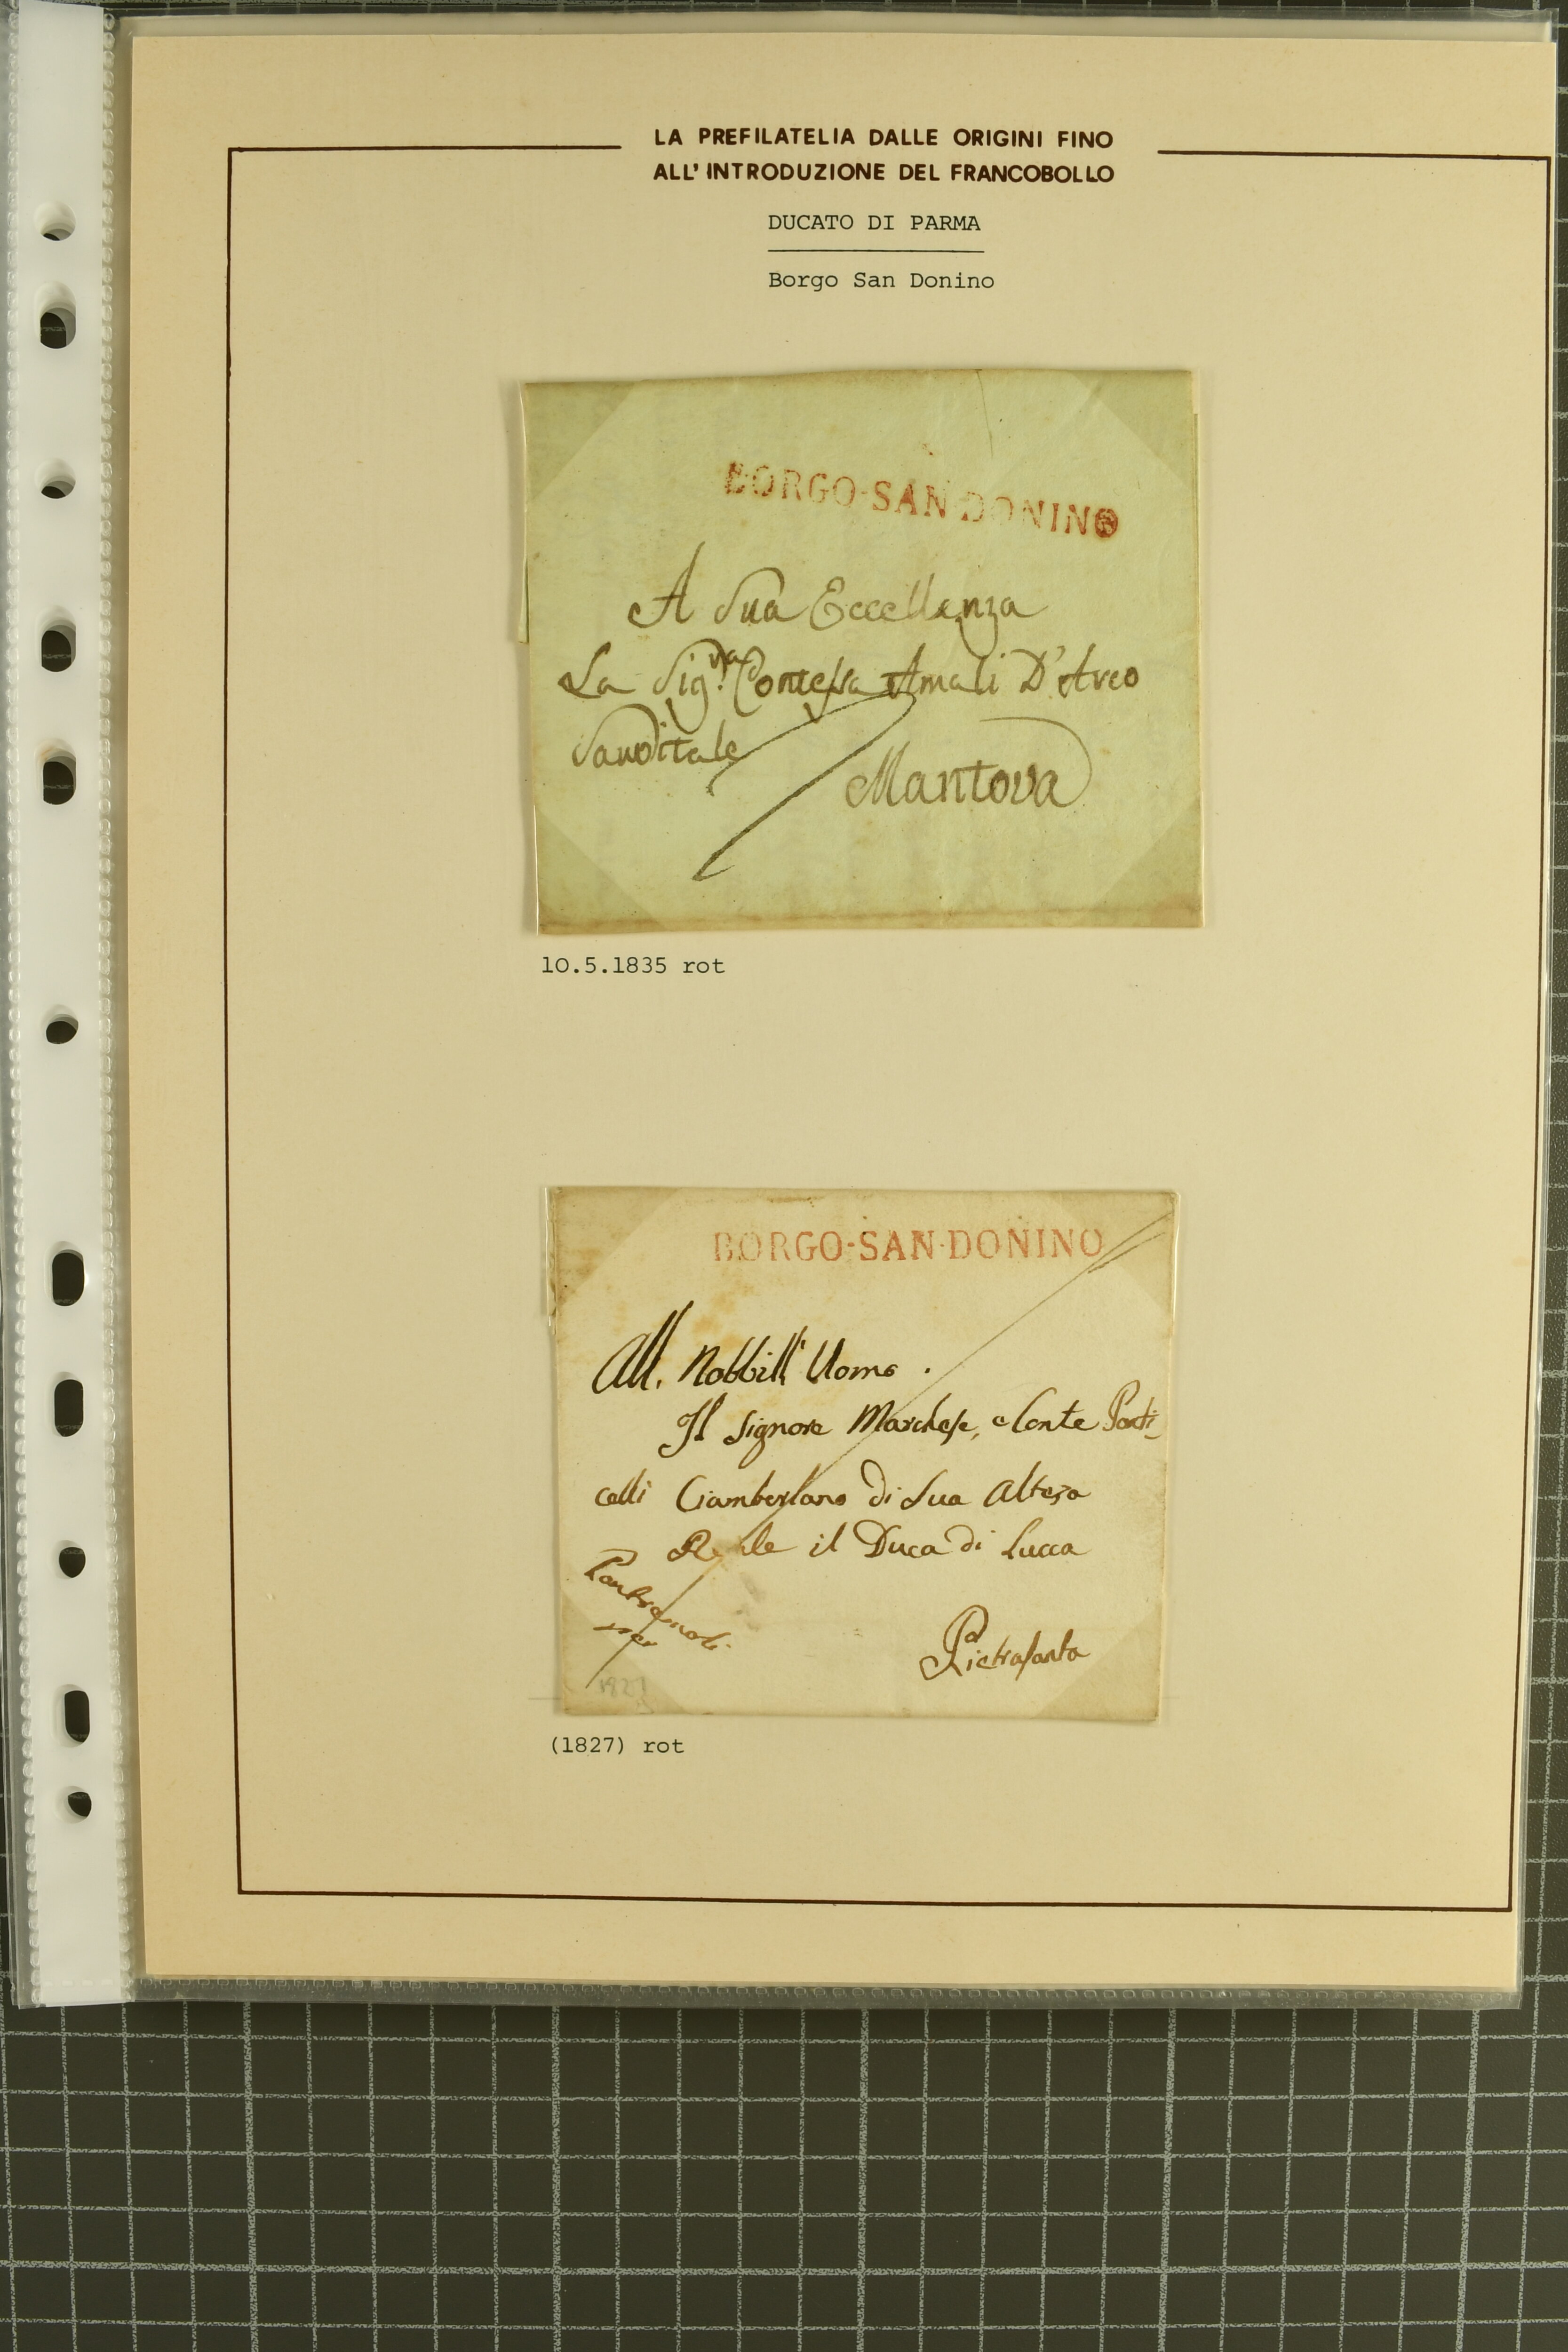 LA PREFILATELIA DALLE ORIGINI FINO
ALL' INTRODUZIONE DEL FRANCOBOLLO
DUCATO DI PARMA
Borgo San Donino
BORGO-SAN-DONINO
A Sua Eccellenza
La Sig.ra Contessa Amali D'Arco
Sanvitale
Mantova
10.5.1835 rot
BORGO-SAN-DONINO
All. Nobbill' Uomo .
Il Signore Marchese, e Conte Parti-
celli Ciamberlano di Sua Alteza
Reale il Duca di Lucca
Pontremoli
per
Pietrasanta
1827
(1827) rot